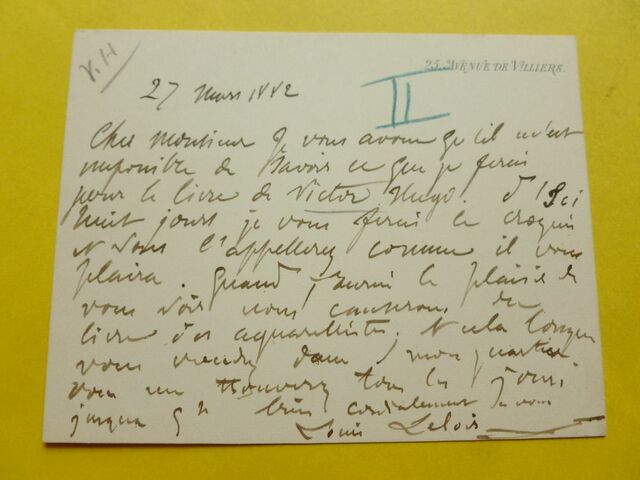 V. H
25, AVENUE DE VILLIERS.
27 mars 1882
II
Cher monsieur Je vous avoue qu'il m'est
impossible de savoir ce que je ferai
pour le livre de Victor Hugo. D'Ici
huit jours je vous ferai le croquis
et vous l'appellerez comme il vous
plaira. Quand j'aurai le plaisir de
vous voir nous causerons du
livre des aquarellistes. Et cela lorsque
vous viendrez dans mon quartier
vous me trouverez tous les jours
jusqu'a 5h bien cordialement à vous
Louis Leloir